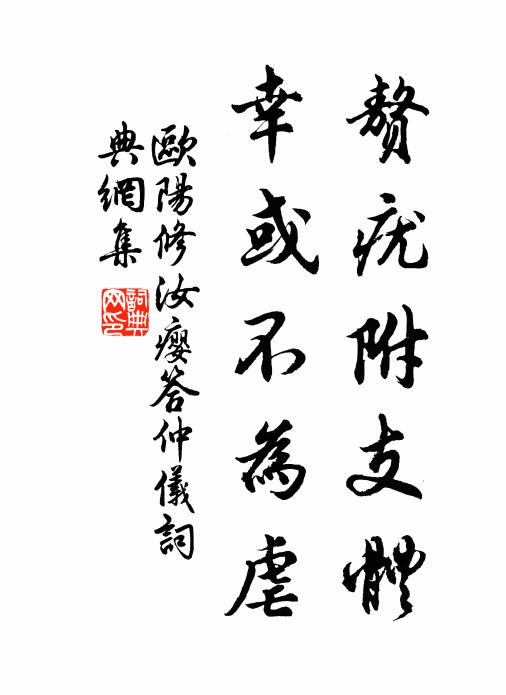 贅疣附支體
幸或不為虐
歐陽修汝癭答仲儀詞
典網集
詞典網印